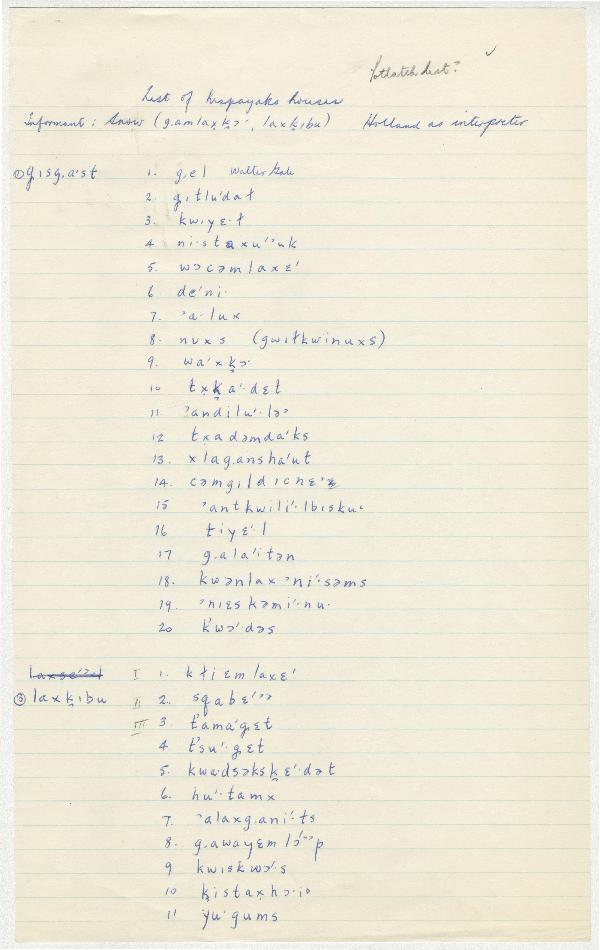 Potlatch list?
List of Kispayaks houses
Informant: Snow (g.amlax̣ḳɔ·, laxḳıbu) Holland as interpreter
① gısg.a·st 1. g.el Walter Gale
2. g.ıtlu'dał
3. kwıyɛ·ł
4 ni·staxu'ʾuk
5. wɔcəmlaxɛ'
6 de'ni·
7. ʾa·lux
8. nuxs (gwıłkwinuxs)
9. wa'xḳɔ·
10 tx̣ḳa'·dɛt
11 ʾandilu'·lɔʾ
12 tx̣adəmda'ks
13. xlag.ansha'ut
14. cəmgıldıcnɛ'x̣
15 ʾantkwili'·lbısku·
16 tiyɛ'l
17 g.ala'itən
18. kwənlaxʾni'·səms
19. ʾnıɛskəmi'·nu·
20 k̓wɔ'·dəs
laxse'ʾɔl I 1. kłiɛmlaxɛ'
③ laxḳıbu II 2. sqabɛ'ʾɔ
III 3 t̓ama'g.ɛt
4 t̓su'·g.ɛt
5. kwadsəksḳɛ'·dət
6. hu'·tamx
7. ʾalaxg.ani'·ts
8. g.awayɛmlɔ'ʾɔp
9 kwıskwɔ'·s
10 ḳistax̣hɔ·iɔ
11 yu'gums